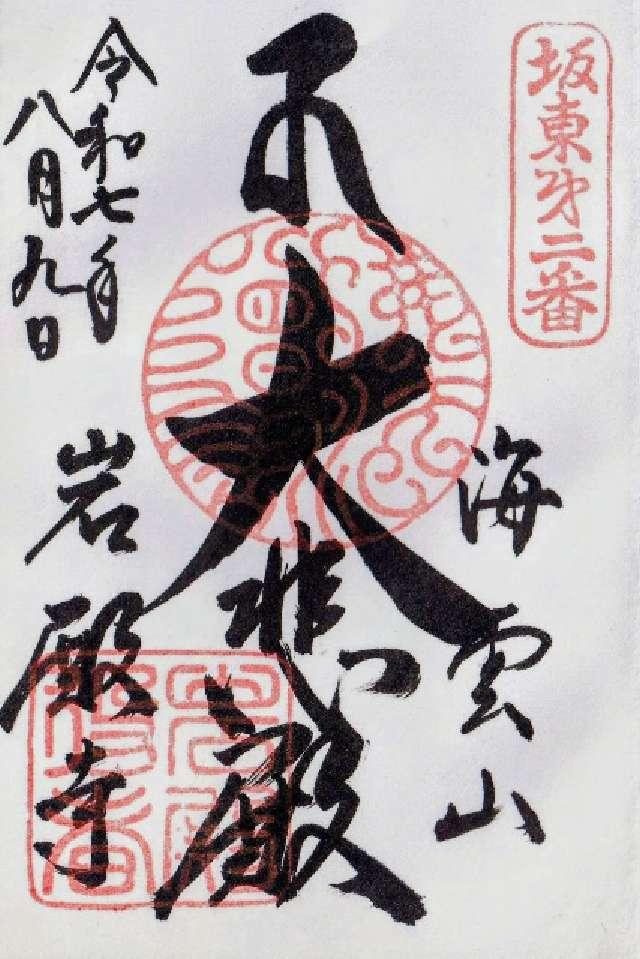 坂東第二番
海雲山
大悲殿
岩殿寺
令和七年
八月九日